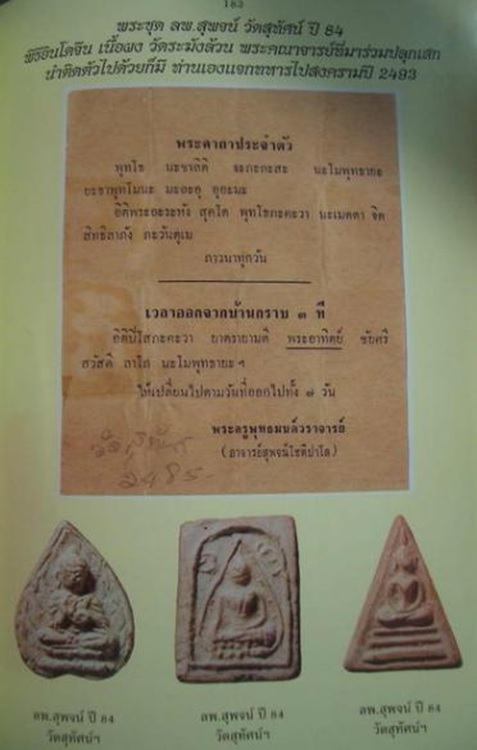 183
พระชุด ลพ.สุพจน์ วัดสุทัศน์ ปี 84
พิธีอินโดจีน เนื้อผง วัดระฆังล้วน พระคณาจารย์ที่มาร่วมปลุกเสก
นำติดตัวไปด้วยก็มี ท่านเองแจกทหารไปสงครามปี 2493
พระคาถาประจำตัว
พุทโธ นะชาลิติ จะภะกะสะ นะโมพุทธายะ
ยะธาพุทโมนะ มะอะอุ อุอะมะ
อิติพระอะระหัง สุคโต พุทโธภะคะวา นะเมตตา จิต
สิทธิลาภัง ภะวันตุเม
ภาวนาทุกวัน
เวลาออกจากบ้านกราบ ๓ ที
อิติปิโสภะคะวา ยาตรายามดี พระอาทิตย์ ชัยศรี
สวัสดี ลาโภ นะโมพุทธายะ ฯ
ให้เปลี่ยนไปตามวันที่ออกไปทั้ง ๗ วัน
พระครูพุทธมนต์วราจารย์
(อาจารย์สุพจน์โชติปาโล)
๒๔๘๕
ลพ.สุพจน์ ปี 84
วัดสุทัศน์ฯ
ลพ.สุพจน์ ปี 84
วัดสุทัศน์ฯ
ลพ.สุพจน์ ปี 84
วัดสุทัศน์ฯ